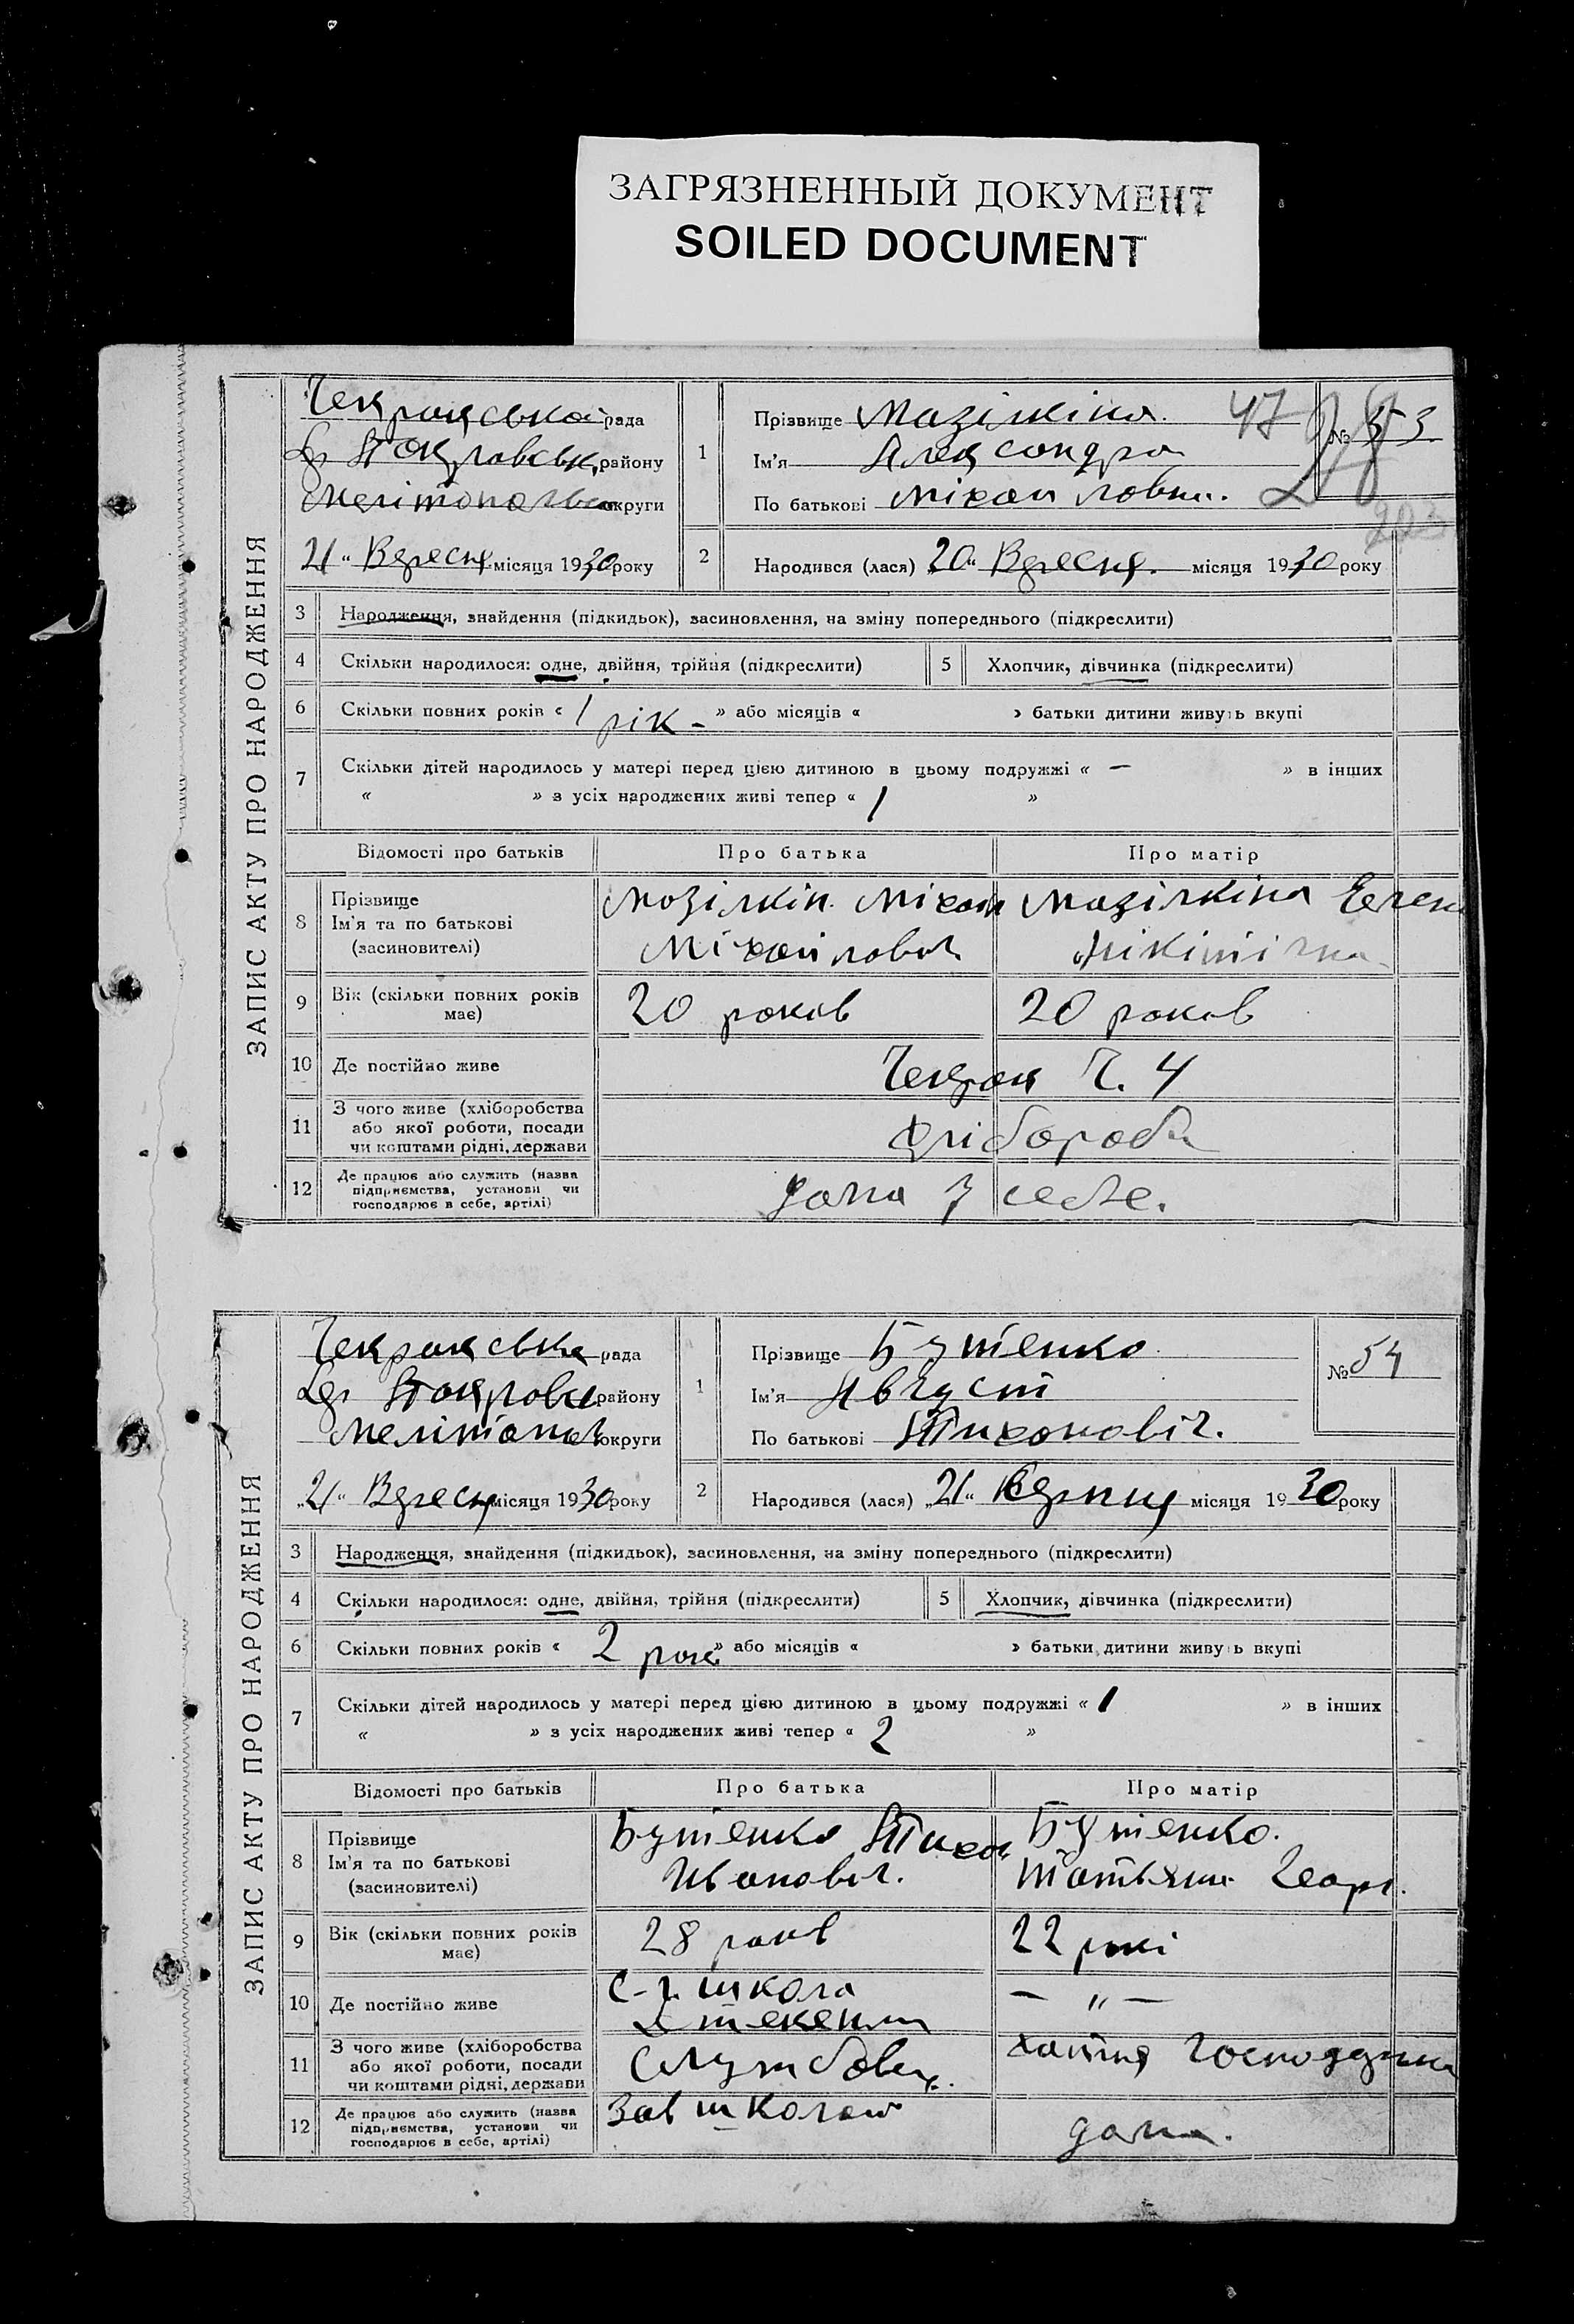 ЗАГРЯЗНЕННЫЙ ДОКУМЕНТ
SOILED DOCUMENT
ЗАПИС АКТУ ПРО НАРОДЖЕННЯ
Чекракська рада
району
округи
„21“ Вересня місяця 1930 року
1
Прізвище Мазілкіна
Ім'я Александра
По батькові Міхайловна.
47
№ 53
203
2
Народився (лася) „20“ Вересня. місяця 1930 року
3 Народження, знайдення (підкидьок), засиновлення, на зміну попереднього (підкреслити)
4 Скільки народилося: одне, двійня, трійня (підкреслити) 5 Хлопчик, дівчинка (підкреслити)
6 Скільки повних років « 1 рік - » або місяців « » батьки дитини живуть вкупі
7 Скільки дітей народилось у матері перед цією дитиною в цьому подружжі « — » в інших
« » з усіх народжених живі тепер « 1 »
Відомості про батьків Про батька Про матір
8 Прізвище
Ім'я та по батькові
(засиновителі)
Мозілкін Міхаил
Міхайлович
Мазілкіна
Нікітічна
9 Вік (скільки повних років має) 20 роков 20 роков
10 Де постійно живе Чекрак Ч. 4
11 З чого живе (хліборобства
або якої роботи, посади
чи коштами рідні, держави
хлібороб
12 Де працює або служить (назва
підприємства, установи чи
господарює в себе, артілі)
дома у себе.
ЗАПИС АКТУ ПРО НАРОДЖЕННЯ
Чекракська рада
району
округи
„21“ Вересня місяця 1930 року
1
Прізвище Бутенко
Ім'я Август
По батькові Тихоновіч.
№ 54
2
Народився (лася) „21“ місяця 1930 року
3 Народження, знайдення (підкидьок), засиновлення, на зміну попереднього (підкреслити)
4 Скільки народилося: одне, двійня, трійня (підкреслити) 5 Хлопчик, дівчинка (підкреслити)
6 Скільки повних років « 2 » або місяців « » батьки дитини живуть вкупі
7 Скільки дітей народилось у матері перед цією дитиною в цьому подружжі « 1 » в інших
« » з усіх народжених живі тепер « 2 »
Відомості про батьків Про батька Про матір
8 Прізвище
Ім'я та по батькові
(засиновителі)
Бутенко Тихон
Иванович.
Бутенко.
Татьяна Геор.
9 Вік (скільки повних років має) 28 роков 22 рокі
10 Де постійно живе С-г. школа — „ —
11 З чого живе (хліборобства
або якої роботи, посади
чи коштами рідні, держави
Службовец.
хатня господарка
12 Де працює або служить (назва
підприємства, установи чи
господарює в себе, артілі)
Зав школою
дома.